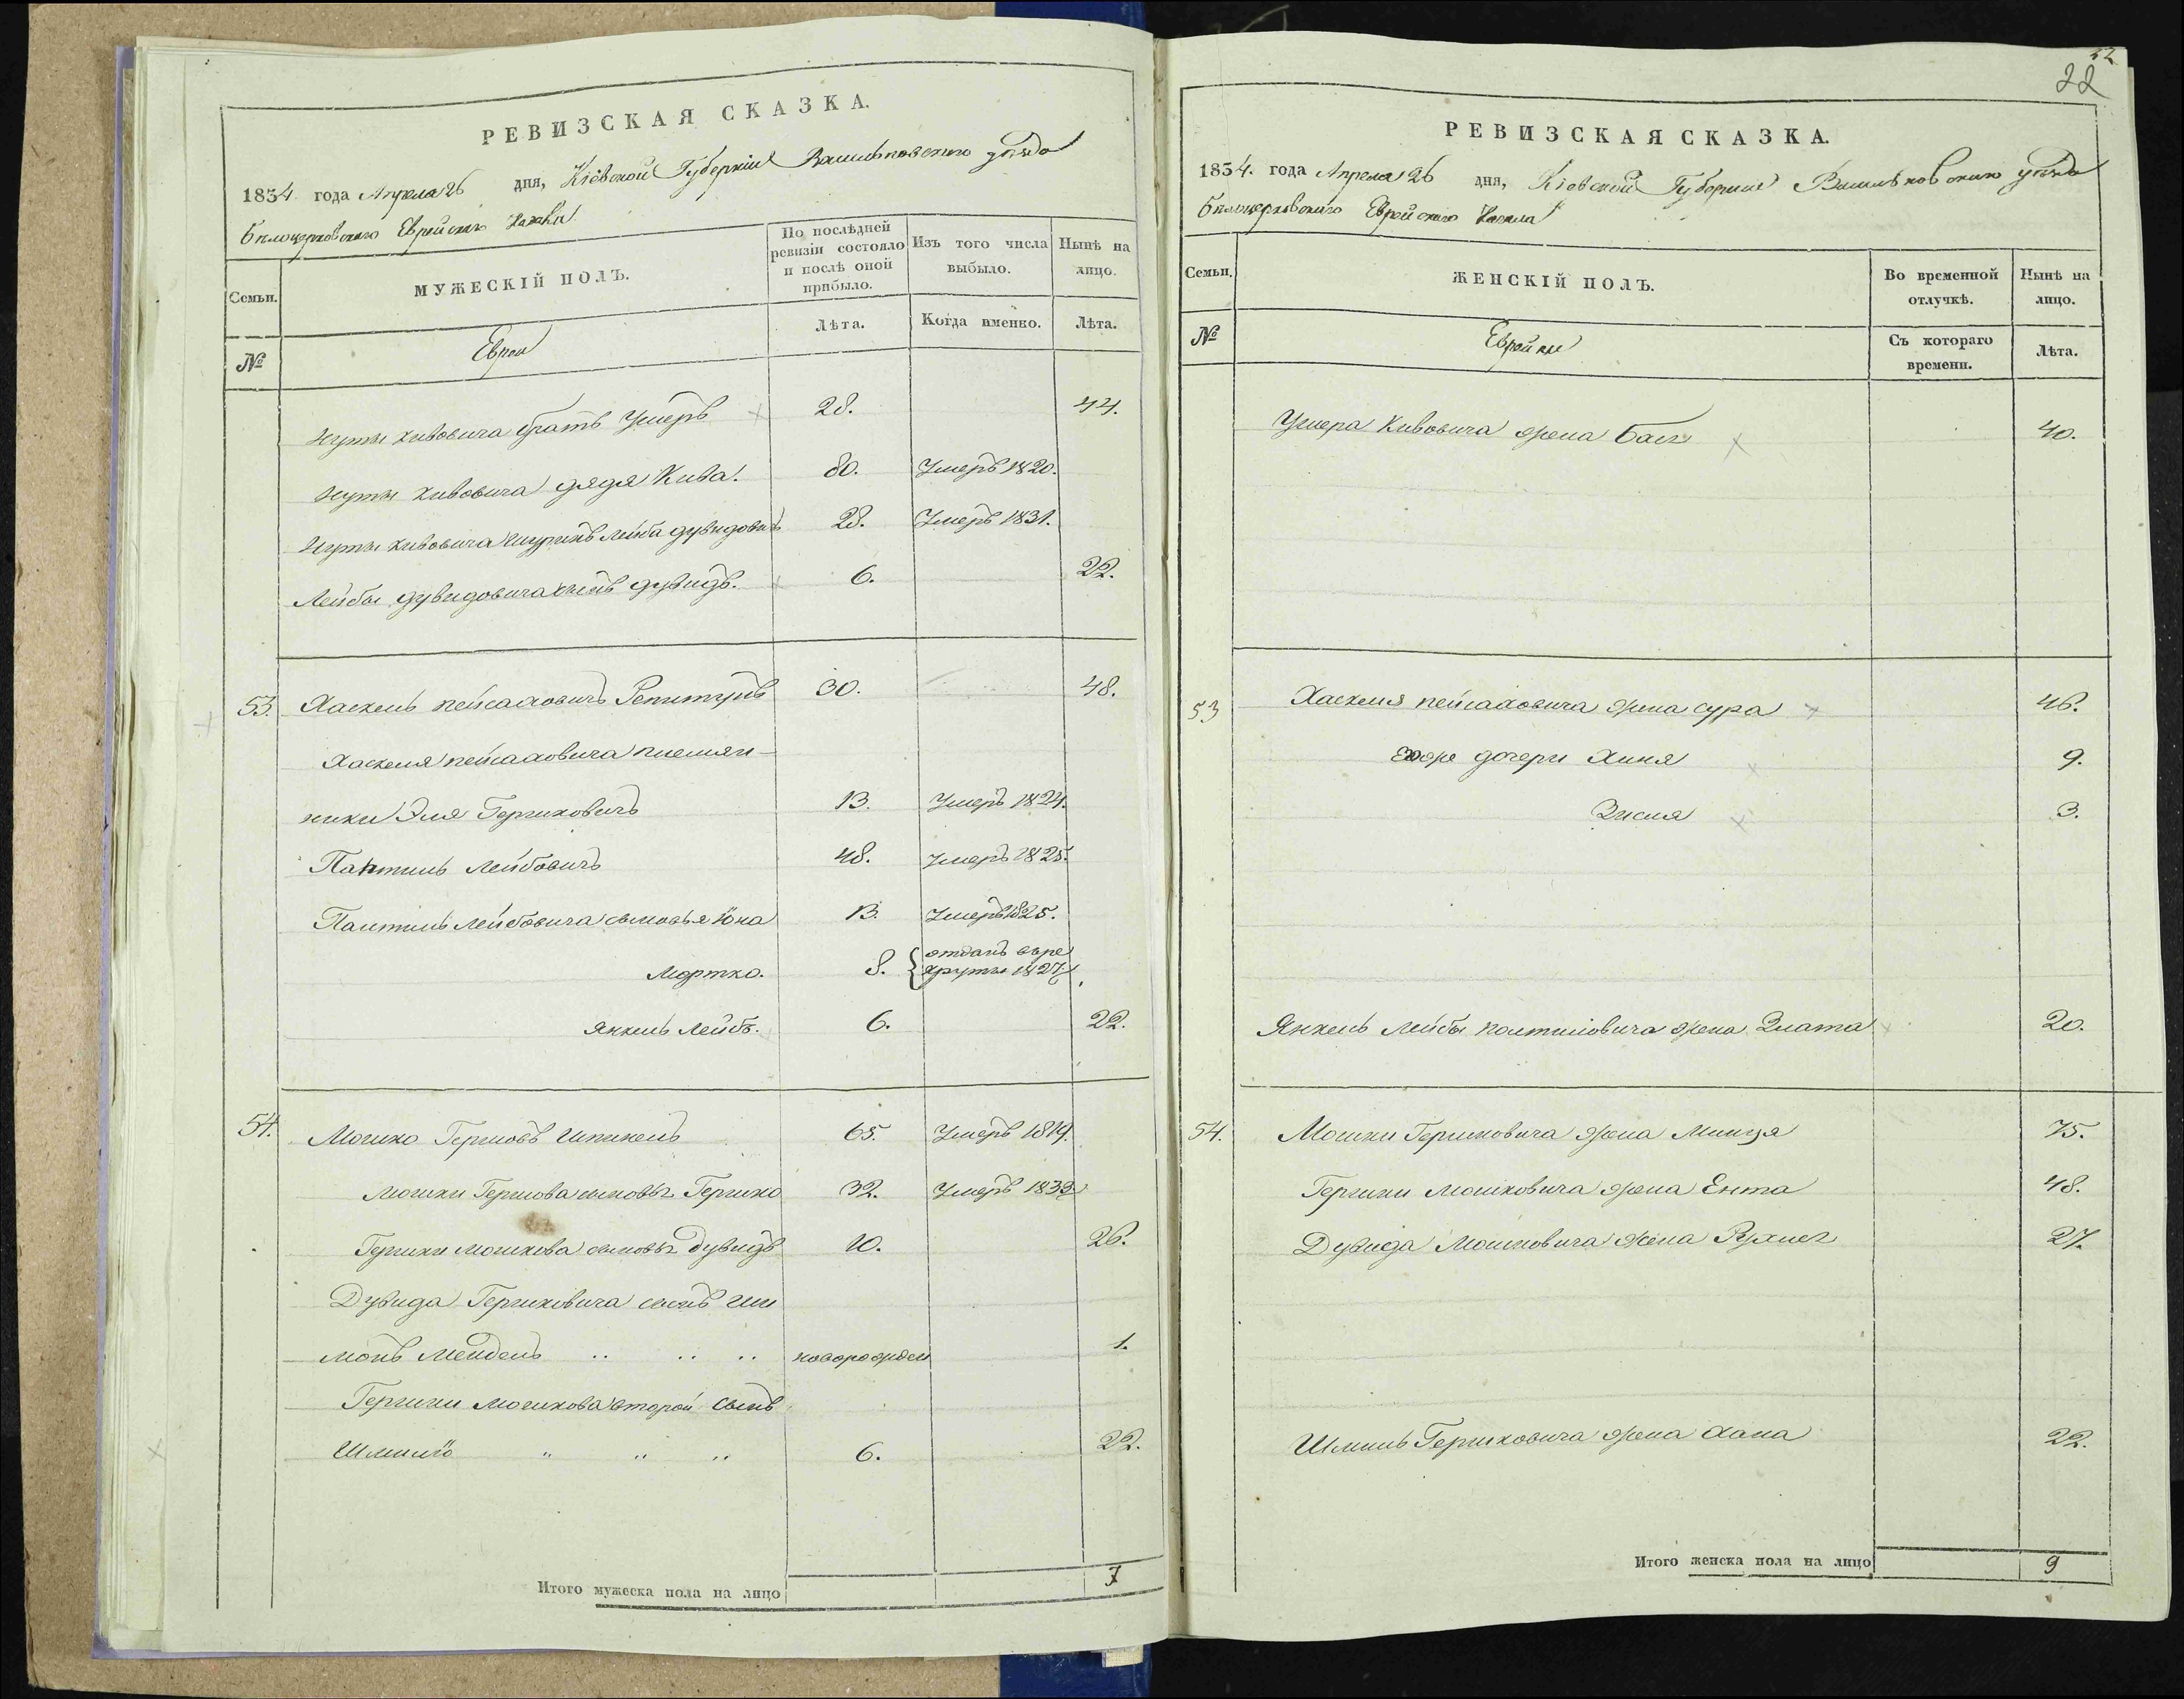 РЕВИЗСКАЯ СКАЗКА.
1834 года Апреля 26 дня, Кіевской Губерніи Васильковского уѣзда
Бѣлоцерковского Еврейского Кагала
Семьи.
МУЖЕСКІЙ ПОЛЪ.
По послѣдней ревизіи состояло и послѣ оной прибыло.
Изъ того числа выбыло.
Нынѣ на лицо.
№
Евреи
Лѣта.
Когда именно.
Лѣта.
Нуты Кивовича братъ Умеръ 28. 44.
Нуты Кивовича дядя Кива. 80. Умеръ 1820.
Нуты Кивовича шуринъ Лейба Дувидовичъ 28. Умеръ 1831.
Лейбы Дувидовича сынъ Дувидъ. 6. 22.
53. Хаскель Пейсаховичъ 30. 48.
Хаскеля Пейсаховича племян-
ники Эля Гершковичъ 13. Умеръ 1824.
Пантиль Лейбовичъ 48. Умеръ 1825.
Пантиль Лейбовича сыновья Юна 13. Умеръ 1825.
Мортко. 8. { отданъ въ ре
круты 1827.
Янкель Лейбъ. 6. 22.
54. Мошко Гершовъ Шпикель 65. Умеръ 1819.
Мошки Гершова сыновъя Гершко 32. Умеръ 1833
Гершки Мошкова сыновъя Дувидъ 10. 26.
Дувида Гершковича сынъ Ши
монъ Мендель .. .. .. новорожден 1.
Гершки Мошкова второй сынъ
Шмилё " " " 6. 22.
Итого мужеска пола на лицо 7
52
22
РЕВИЗСКАЯ СКАЗКА.
1834. года Апреля 26 дня, Кіевской Губерніи Васильковского уѣзда
Бѣлоцерковского Еврейского Кагала
Семьи.
ЖЕНСКІЙ ПОЛЪ.
Во временной отлучкѣ.
Нынѣ на лицо.
№
Еврейки
Съ котораго времени.
Лѣта.
Умера Кивовича жена Бася 40.
53 Хаскеля Пейсаховича жена Сура 46.
Егоже дочери Хиня 9.
Зисля 3.
Янкель Лейбы Полтиловича жена Злата 20.
54. Мошки Гершковича жена Минця 75.
Гершки Мошковича жена Ента 48.
Дувида Мошковича жена Рухля 27.
Шмиль Гершковича жена Хана 22.
Итого женска пола на лицо 9